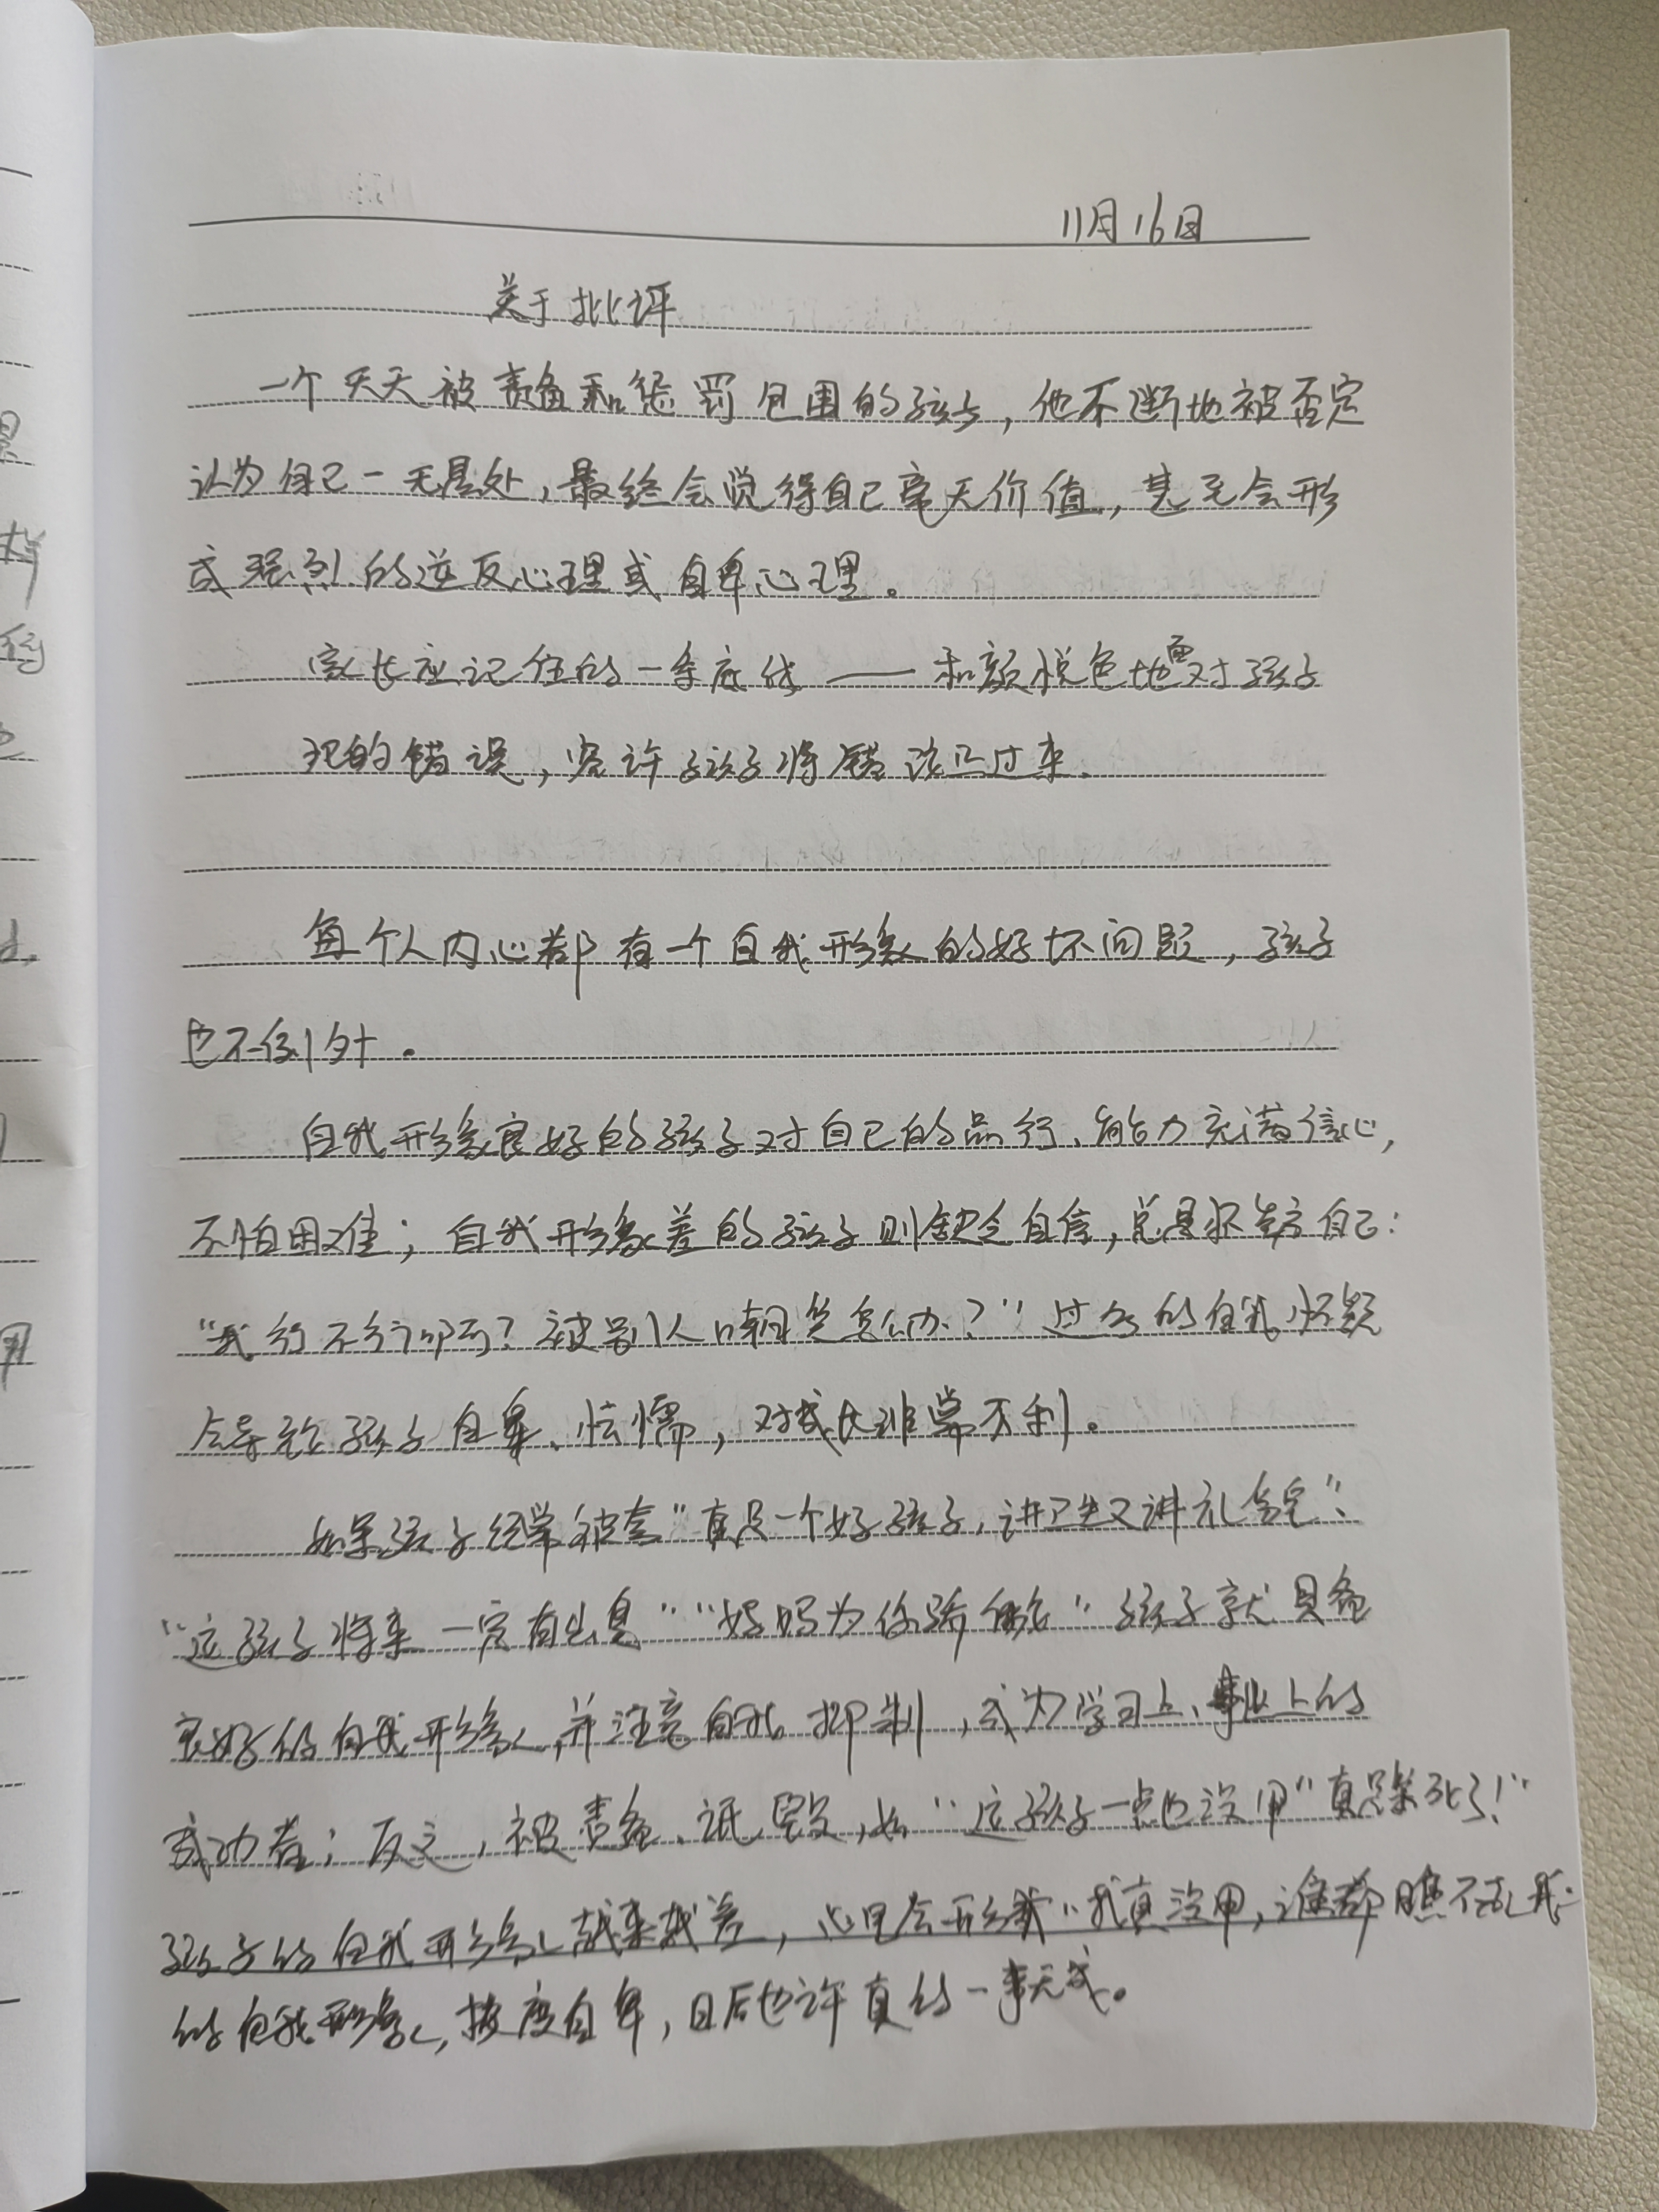 11月16日
关于批评
一个天天被责备和惩罚包围的孩子，他不断地被否定
认为自己一无是处，最终会觉得自己毫无价值，甚至会形
成强烈的逆反心理或自卑心理。
家长应记住的一条底线——和颜悦色地面对孩子
犯的错误，容许孩子将错误改正过来.
每个人内心都有一个自我形象的好坏问题，孩子
也不例外。
自我形象良好的孩子对自己的品行、能力充满信心，
不怕困难；自我形象差的孩子则缺乏自信，总是怀疑自己：
“我行不行啊？被别人嘲笑怎么办？”过多的自我怀疑
会导致孩子自卑、怯懦，对成长非常不利。
如果孩子经常被夸“真是一个好孩子，讲卫生又讲礼貌”、
“这孩子将来一定有出息”“妈妈为你骄傲”孩子就具备
良好的自我形象，并注意自我抑制，成为学习上、事业上的
成功者；反之，被责备、诋毁，如“这孩子一点也没用”真是笨死了！”
孩子的自我形象越来越差，心里会形成“我真没用，谁都瞧不起我”
的自我形象，极度自卑，日后也许真的一事无成。